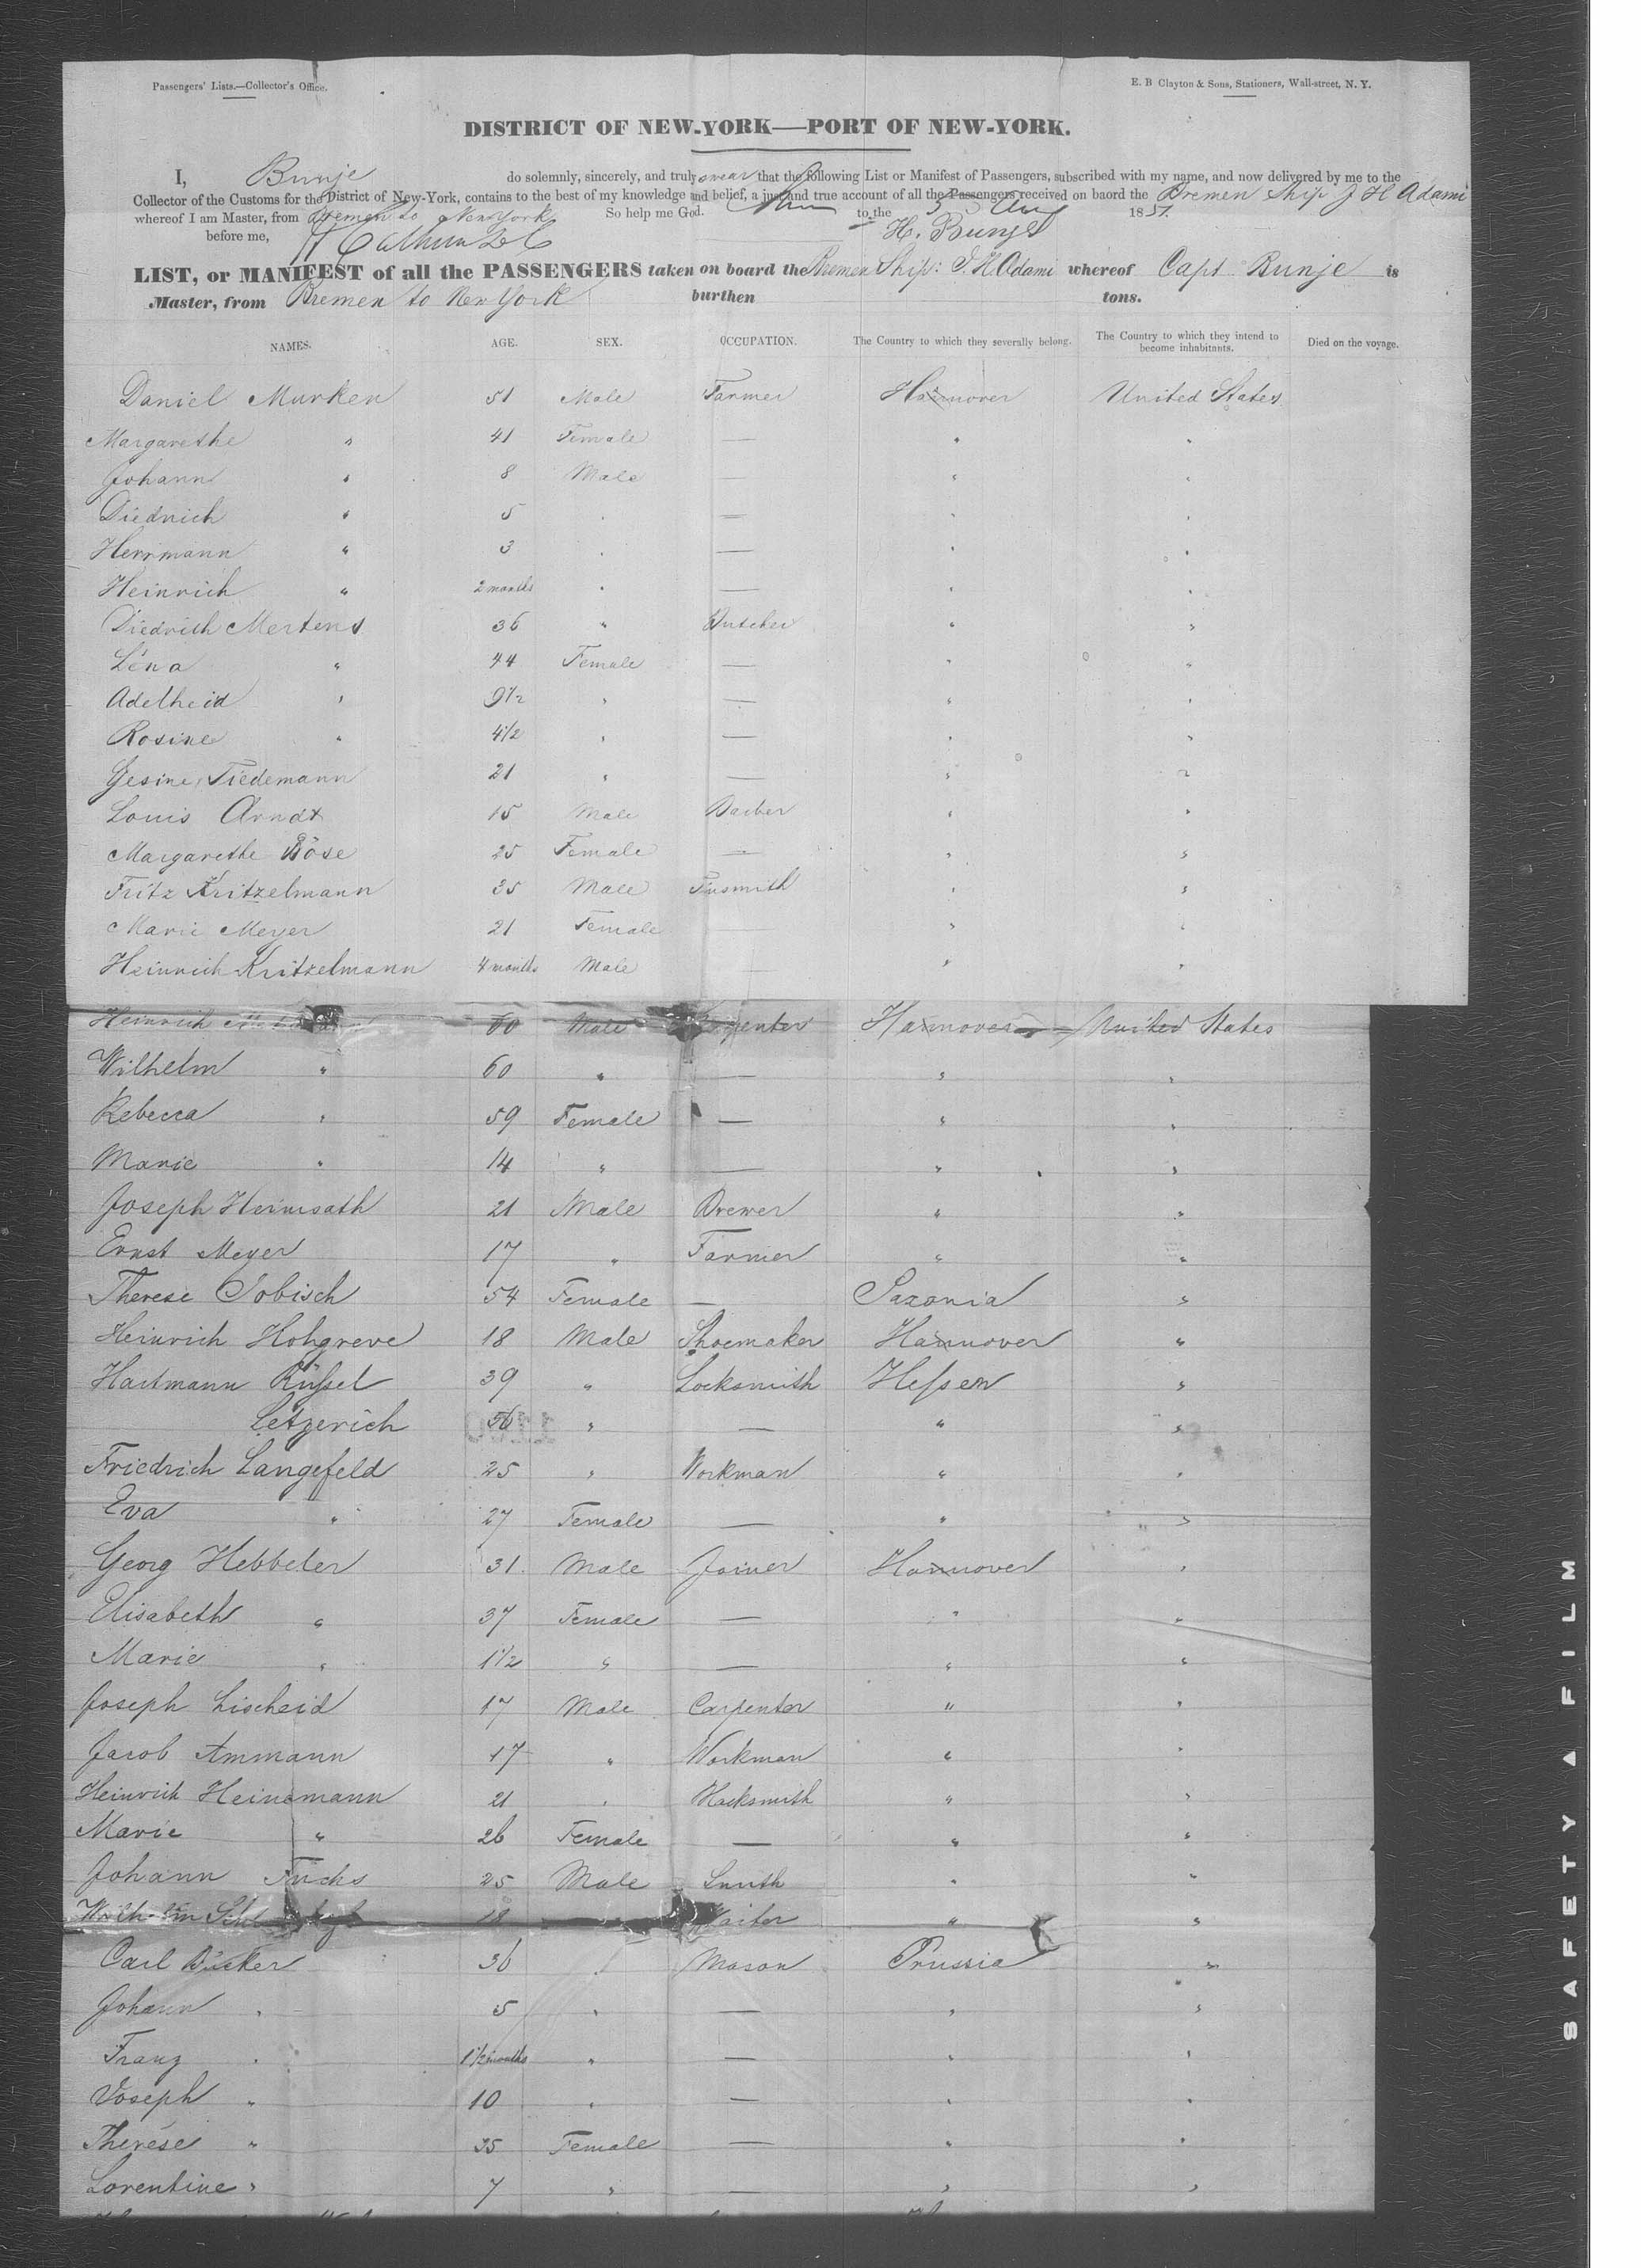 Passengers' Lists.—Collector's Office.
E. B Clayton & Sons, Stationers, Wall-street, N. Y.
DISTRICT OF NEW-YORK—PORT OF NEW-YORK.
I, Bunje do solemnly, sincerely, and truly swear that the following List or Manifest of Passengers, subscribed with my name, and now delivered by me to the
Collector of the Customs for the District of New-York, contains to the best of my knowledge and belief, a just and true account of all the Passengers received on baord the Bremen Ship J H Adami
whereof I am Master, from Bremen to New York So help me God. to the Aug 185
before me, H. Bunje
LIST, or MANIFEST of all the PASSENGERS taken on board the Bremen Ship: J. H Adami whereof Capt Bunje is
Master, from Bremen to New York burthen tons.
NAMES. AGE. SEX. OCCUPATION. The Country to which they severally belong. The Country to which they intend to become inhabitants. Died on the voyage.
Daniel Murken 51 Male Farmer Hannover United States
Margarethe " 41 Female — " "
Johann " 8 Male — " "
Diedrich " 5 " — " "
Herrmann " 3 " — " "
Heinrich " 2 months " — " "
Diedrich Mertens 36 " Butcher " "
Lena " 44 Female — " "
Adelheid " 9½ " — " "
Rosine " 4½ " — " "
Gesine Tiedemann 21 " — " "
Louis Arndt 15 Male Barber " "
Margarethe Böse 25 Female — " "
Fritz Kritzelmann 35 Male Tinsmith " "
Marie Meyer 21 Female — " "
Heinrich Kritzelmann 4 months Male — " "
Heinrich 60 Male Carpenter Hannover United States
Wilhelm " 60 " — " "
Rebecca " 59 Female — " "
Marie " 14 " — " "
Joseph Heimsath 21 Male Brewer " "
Ernst Meyer 17 " Farmer " "
Therese Tobisch 54 Female — Saxonia "
Heinrich Hohgreve 18 Male Shoemaker Hannover "
Hartmann Rüssel 39 " Locksmith Hessen "
Letzerich 56 " — " "
Friedrich Langefeld 25 " Workman " "
Eva " 27 Female — " "
Georg Hebbeler 31 Male Joiner Hannover "
Elisabeth " 37 Female — " "
Marie " 1½ " — " "
Joseph Lischeid 17 Male Carpenter " "
Jacob Ammann 17 " Workman " "
Heinrich Heinemann 21 " Blacksmith " "
Marie " 26 Female — " "
Johann Fuchs 25 Male Smith " "
18 " Waiter " "
Carl Bücker 36 " Mason Prussia "
Johann " 5 " — " "
Franz " 1½ months " — " "
Joseph " 10 " — " "
Therese " 35 Female — " "
Lorentine " 7 " — " "
SAFETY A FILM